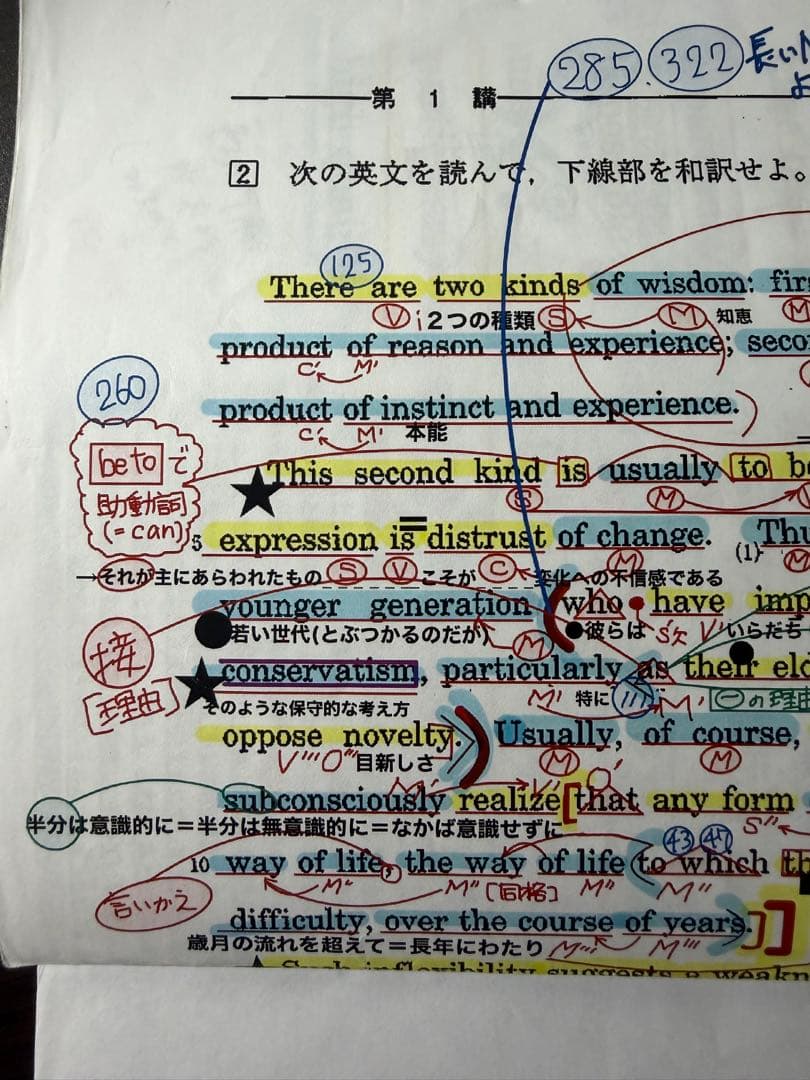 285. 322 長い
第 1 講
2 次の英文を読んで，下線部を和訳せよ。
125
There are two kinds of wisdom: firs
V i 2つの種類 S M 知恵 M
product of reason and experience; seco
C' M'
260
product of instinct and experience.
C' M' 本能
be to で
助動詞
(= can)
This second kind is usually to be
S M
5 expression is distrust of change. Thu
→それが主にあらわれたもの S V こそが C 変化への不信感である M (1) M
younger generation (who have imp
若い世代(とぶつかるのだが) M 彼らは S' V' いらだち
接
[理由]
conservatism, particularly as their eld
そのような保守的な考え方 M' 特に M' の理由
oppose novelty. Usually, of course,
V''' O''' 目新しさ M M
subconsciously realize [that any form
M' V' O'
半分は意識的に＝半分は無意識的に＝なかば意識せずに S''
43 47
10 way of life, the way of life (to which th
M'' M'' [同格] M'' M''
言いかえ
difficulty, over the course of years.)]
歳月の流れを超えて＝長年にわたり M''' M'''
Such inflexibility suggests a weakn